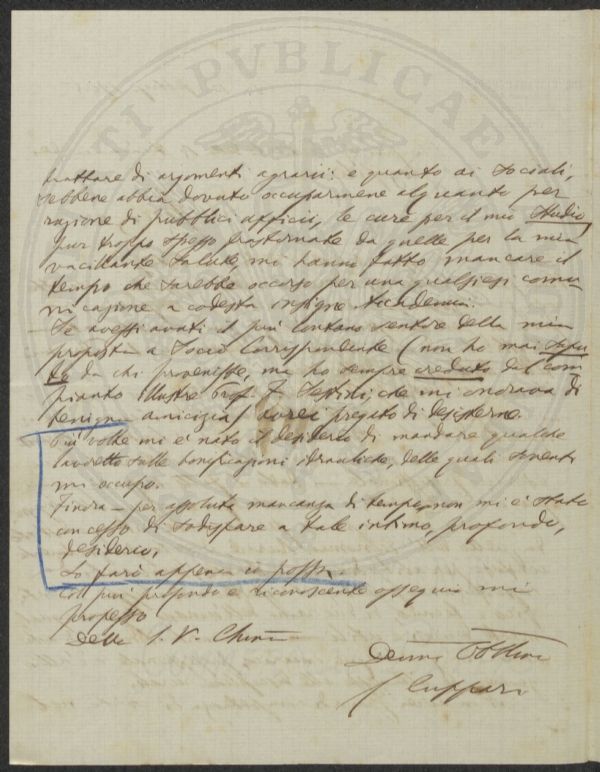 trattare di argomenti agrarii: e quanto ai sociali,
sebbene abbia dovuto occuparmene alquanto per
ragione di pubblici ufficii, le cure per il mio studio,
pur troppo spesso frastornate da quelle per la mia
vacillante salute mi hanno fatto mancare il
tempo che sarebbe occorso per una qualsiesi comu
nicazione a codesta insigne Accademia.
Se avessi avuti il più lontano sentore della mia
proposta a Socio Corrispondente (non ho mai sapu
to da chi provenisse, ma ho sempre creduto del com
pianto illustre Prof. F. Sestini, che mi onorava di
benigna amicizia) avrei pregato di desisterne.
Più volte mi è nato il desiderio di mandare qualche
lavoretto sulle bonificazioni idrauliche, delle quali sovente
mi occupo.
Finora – per assoluta mancanza di tempo, non mi è stato
concesso di sodisfare a tale intimo, profondo,
desiderio.
Lo farò appena io possa.
Col più profondo e riconoscente ossequio mi
professo
Della S. V. Chma
Devmo Obblmo
Cuppari
TI PVBLICAE